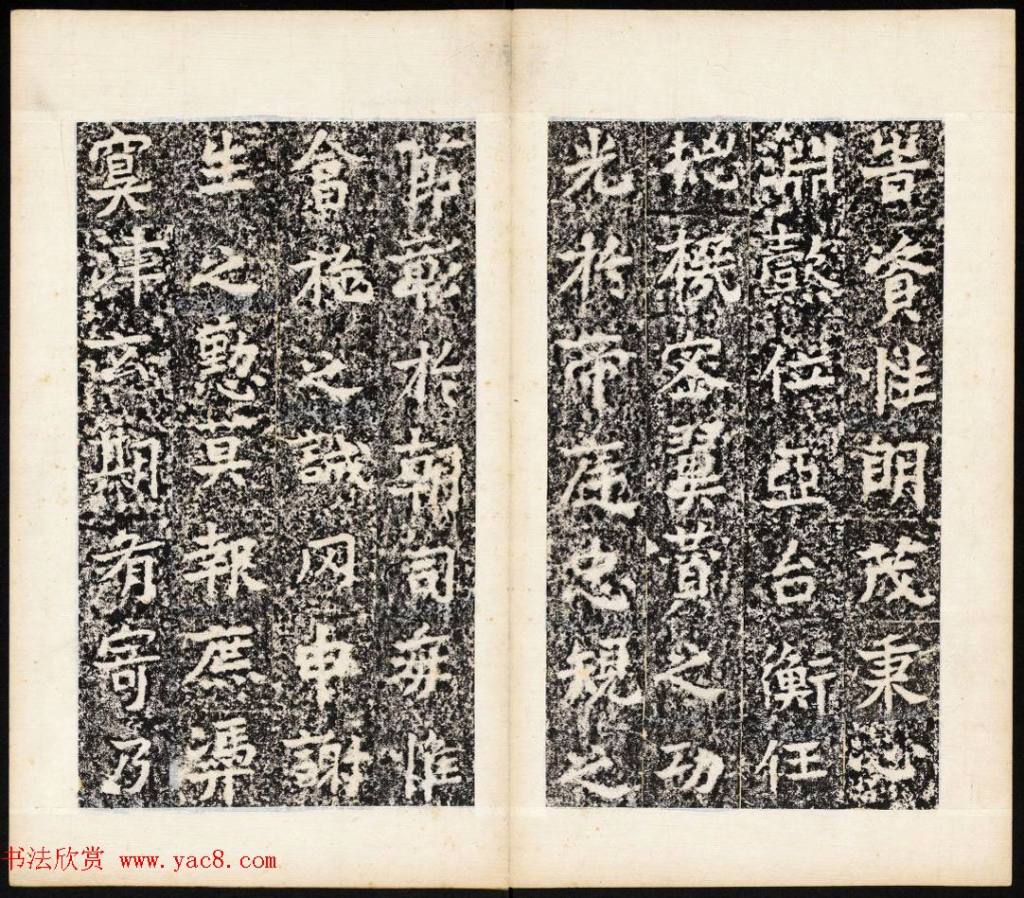 並資性明茂秉心
淵懿位亞台衡任
揔機密翼賛之功
光於帝庭忠規之
節彰於朝司每惟
會極之誠罔申謝
生之懃莫報庶憑
冥津玄期有寄乃
书法欣赏 www.yac8.com